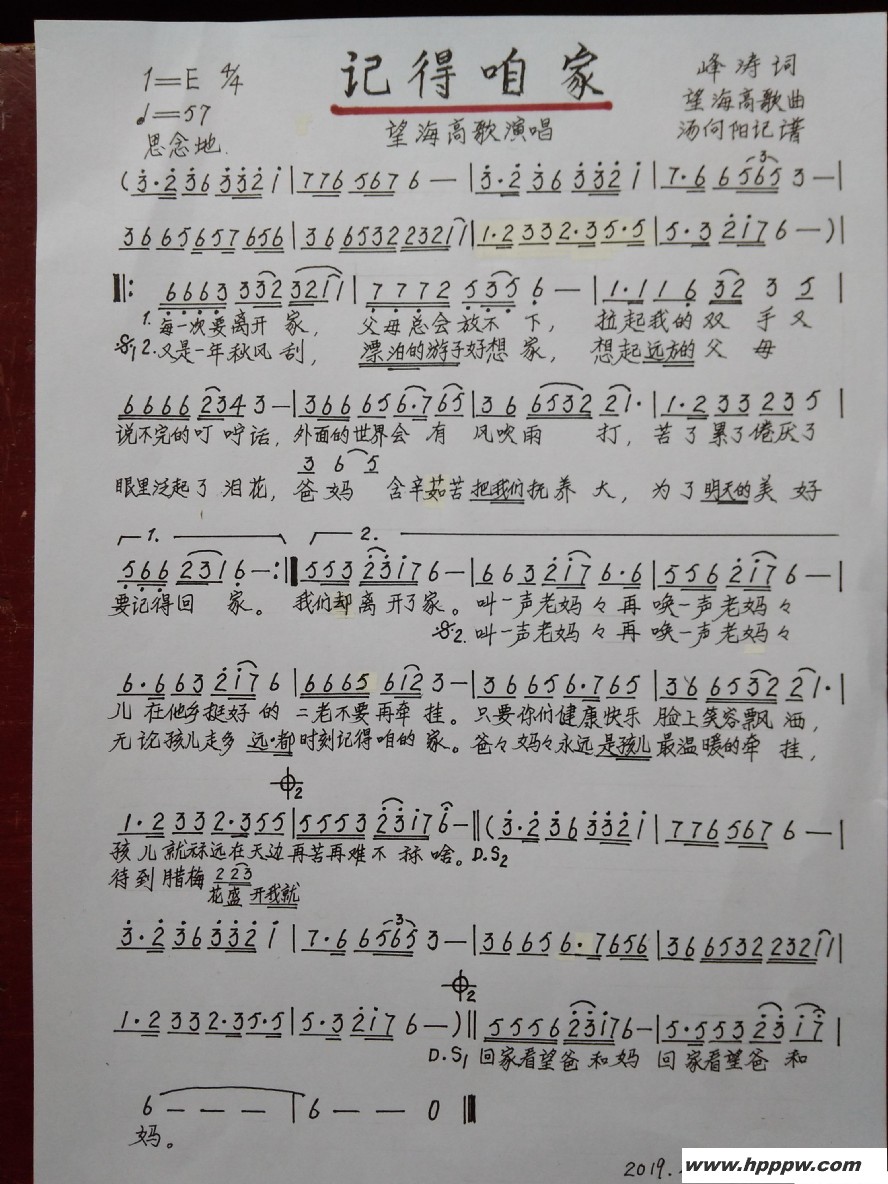 记得咱家
1=E 4/4
♩=57
思念地.
望海高歌演唱
峰涛词
望海高歌曲
汤向阳记谱
(3̇·2̇ 3̇6 3̇3̇2̇ 1̇ | 776 567 6 — | 3̇·2̇ 3̇6 3̇3̇2̇ 1̇ | 7·6 6 565 3 — |
36 665657656 | 36 6532 23211 | 1·2 332·35·5 | 5·3 2̇1̇7 6 —) |
‖: 6663 332 3211 | 7772 535 6 — | 1·1 16 32 3 5 |
1. 每一次要离开 家， 父母总会放不 下， 拉起我的 双 手 又
𝄋1 2. 又是一年秋风 刮， 漂泊的游子好想 家， 想起远方的 父 母
6666 234 3 — | 366 656·765 | 36 6532 21· | 1·2 33 23 5 |
说不完的叮 咛话，外面的世界会 有 风吹雨 打，苦了累了倦厌了
3 6 5
眼里泛起了 泪花，爸妈 含辛茹苦把我们抚养 大，为了明天的美好
1. 2.
566 231 6 — :‖ 553 2̇3̇1̇7 6 — | 663 2̇1̇7 6·6 | 556 2̇1̇7 6 — |
要记得回 家。 我们却离开了家。叫一声老妈々再 唤一声老妈々
𝄋2. 叫一声老妈々再 唤一声老妈々
6·663 2̇1̇7 6 | 6665 612 3 — | 36 6656·765 | 36 6532 21· |
儿 在他乡挺好 的 二老不要再牵 挂。只要你们健康快乐 脸上笑容飘 洒，
无论孩儿走多 远·都时刻记得咱的 家。爸々妈々永远是孩儿最温暖的牵 挂，
𝄌2
1·2 332·355 | 5553 2̇3̇1̇7 6 — ‖ (3̇·2̇ 3̇6 3̇3̇2̇ 1̇ | 776 567 6 — |
孩儿就秫远在天边再苦再难不 秫啥。D.S2
待到腊梅 223
花盛 开我就
3̇·2̇ 3̇6 3̇3̇2̇ 1̇ | 7·6 6565 3 — | 36665 6·7656 | 36 6532 23211 |
𝄌2
1·2 332·35·5 | 5·3 2̇1̇7 6 —) ‖ 5556 2̇3̇1̇76 — | 5·553 2̇3̇ 1̇7 |
D.S1 回家看望爸 和妈 回家看望爸 和
6 — — — | 6 — — 0 ‖
妈。
2019.
www.hpppw.com